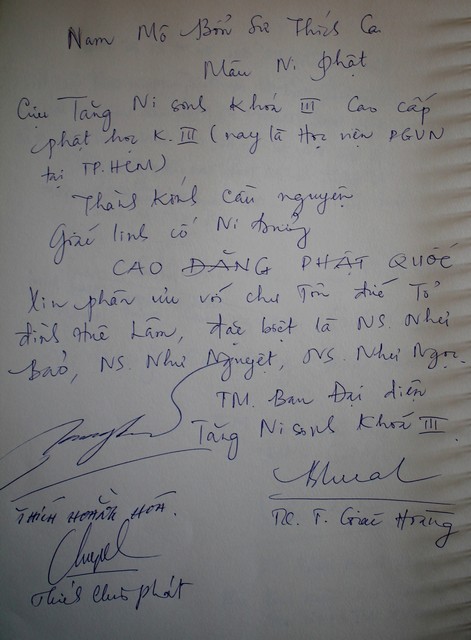 Nam Mô Bổn Sư Thích Ca
Mâu Ni Phật
Cựu Tăng Ni sinh Khóa III Cao cấp
phật học K.III (nay là Học viện PGVN
tại TP.HCM)
Thành Kính cầu nguyện
Giác linh cố Ni trưởng
CAO ĐĂNG PHẬT QUỐC
Xin phân ưu với chư Tôn đức Tổ
đình Huê Lâm, đặc biệt là NS. Như
Bảo, NS. Như Nguyệt, NS. Như Ngọc.
TM. Ban Đại diện
Tăng Ni sinh Khóa III
THÍCH HOẰNG HÓA.
TC. T. Giác Hoàng
Thích Chúc Phát